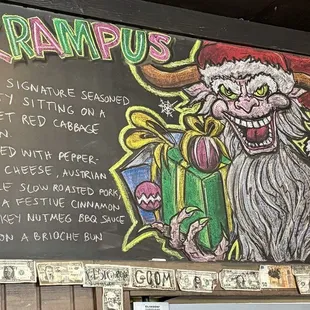 KRAMPUS
SIGNATURE SEASONED
TY SITTING ON A
ET RED CABBAGE
N.
ED WITH PEPPER-
CHEESE, AUSTRIAN
LE SLOW ROASTED PORK
A FESTIVE CINNAMON
KEY NUTMEG BBQ SAUCE
ON A BRIOCHE BUN
GCOM